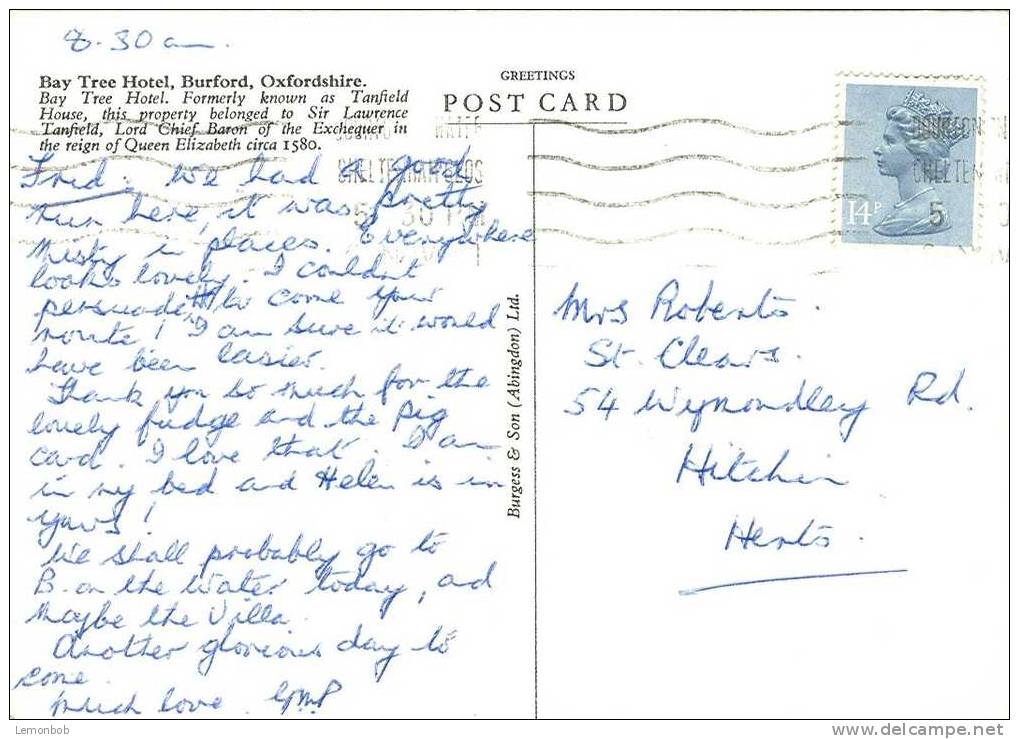 8.30am.
Bay Tree Hotel, Burford, Oxfordshire.
Bay Tree Hotel. Formerly known as Tanfield
House, this property belonged to Sir Lawrence
Tanfield, Lord Chief Baron of the Exchequer in
the reign of Queen Elizabeth circa 1580.
Frid. We had a good
run here, it was pretty
misty in places. Everywhere
looks lovely. I couldn't
persuade H to come your
route! I am sure it would
have been easier.
Thank you so much for the
lovely fudge and the pig
card. I love that. I am
in my bed and Helen is in
yours!
We shall probably go to
B. on the Water today, and
maybe the Villa.
Another glorious day to
come.
Much love GMP
GREETINGS
POST CARD
Burgess & Son (Abingdon) Ltd.
14P
CHELTENHAM GLOS
5 30 PM
BOURTON
CHELTEN
5
Mrs Roberts.
St. Clears.
54 Wymondley Rd.
Hitchin
Herts.
Lemonbob
delcampe.net